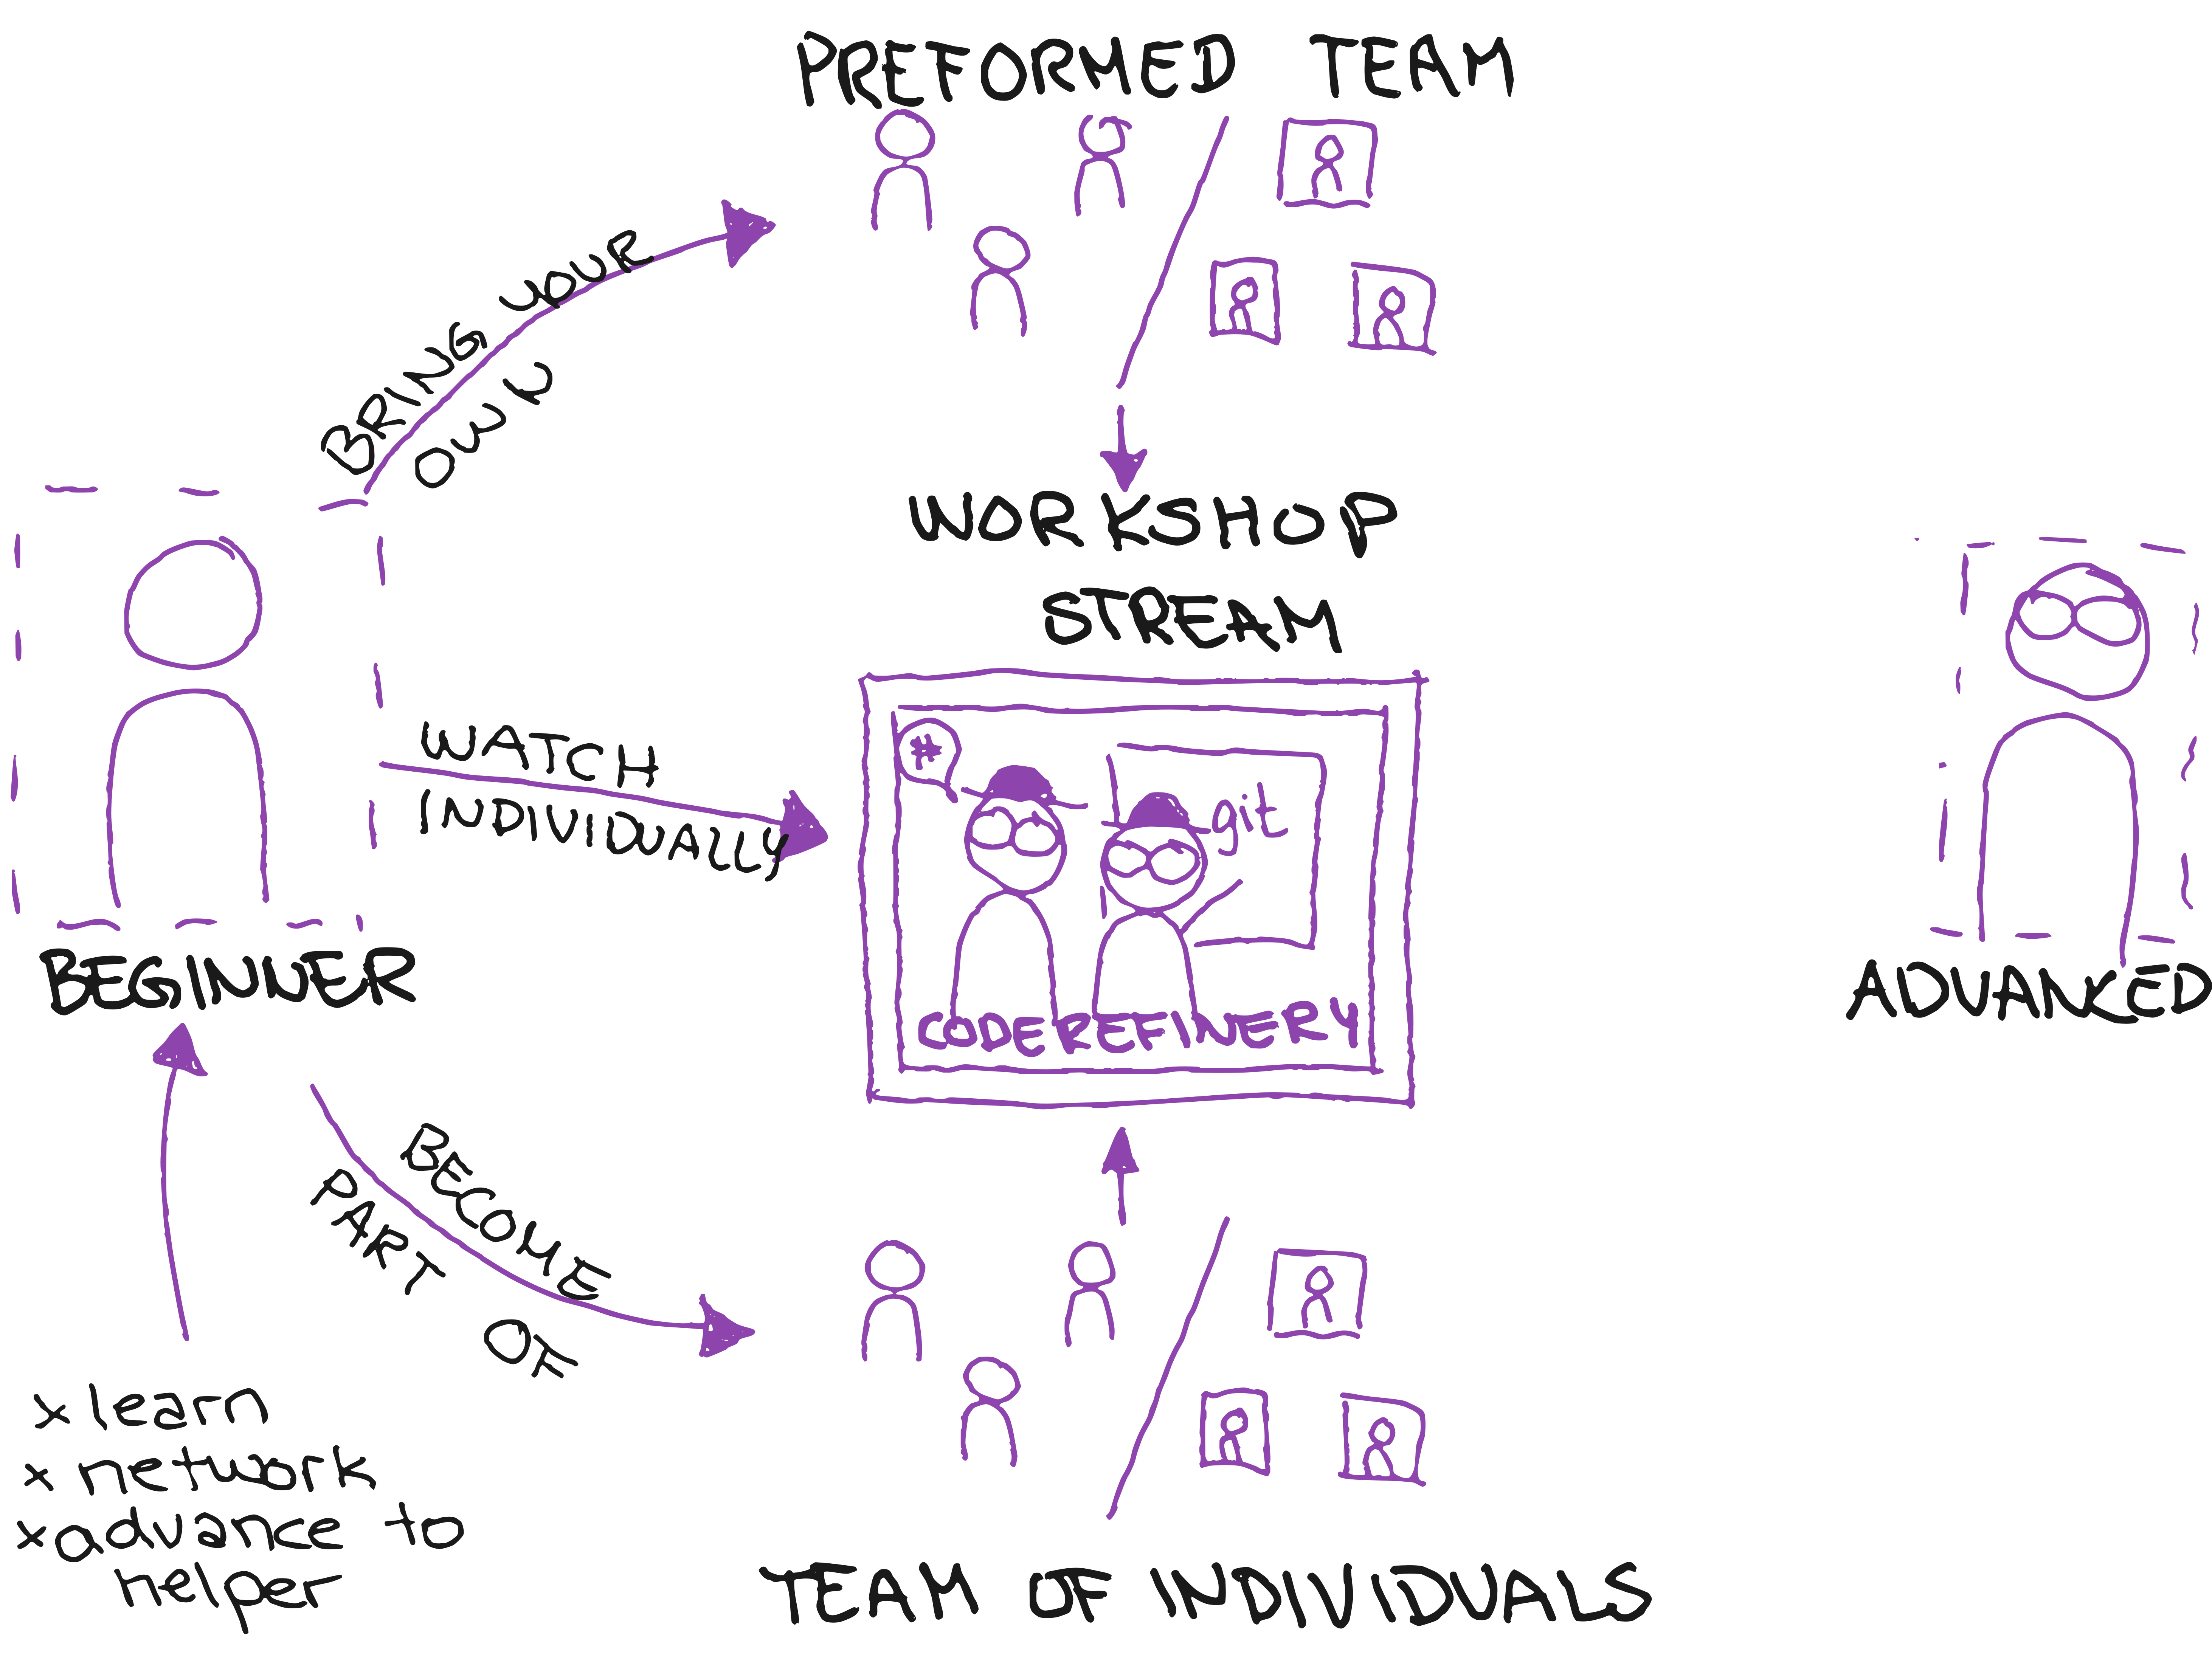 PREFORMED TEAM
BRING YOUR
OWN
WORKSHOP
STREAM
WATCH
INDIVIDUALLY
git
CODEREFINERY
BEGINNER
ADVANKED
BECOME
PART
OF
x learn
x network
x advance to
helper
TEAM OF INDIVIDUALS